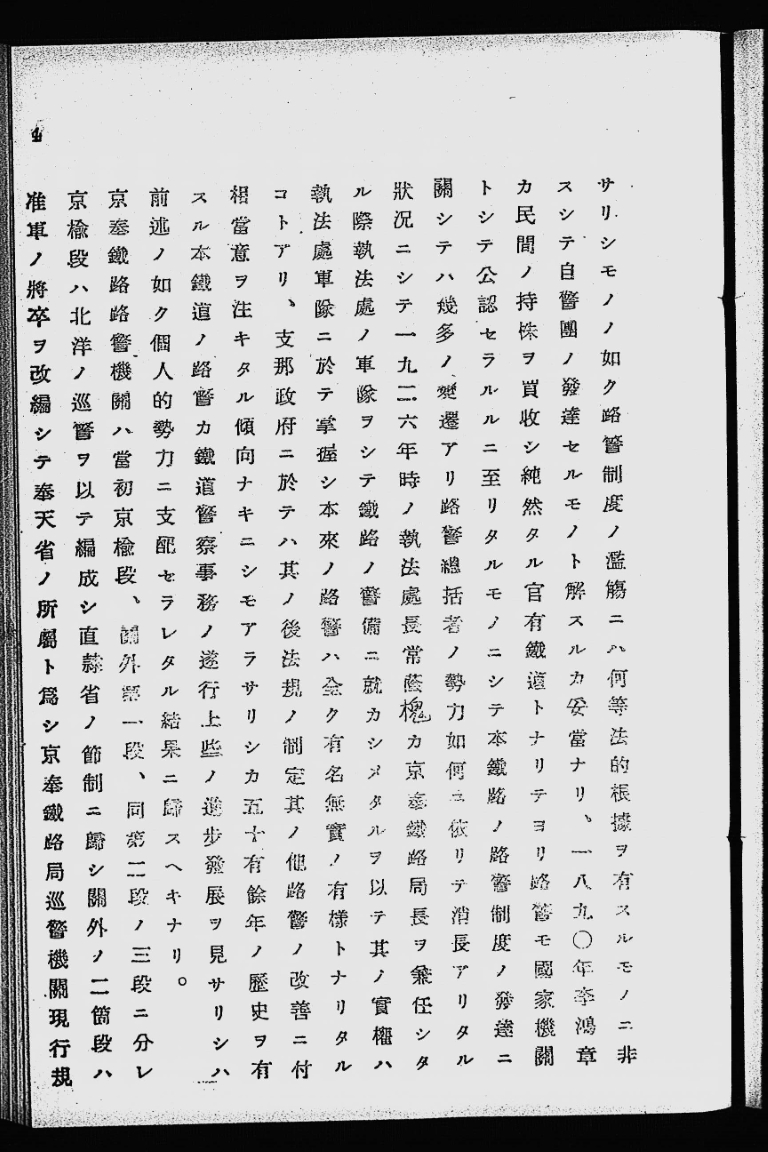 サリシモノノ如ク路警制度ノ濫觴ニハ何等法的根據ヲ有スルモノニ非
スシテ自警團ノ發達セルモノト解スルカ妥當ナリ、一八九〇年李鴻章
カ民間ノ持株ヲ買收シ純然タル官有鐵道トナリテヨリ路警モ國家機關
トシテ公認セラルルニ至リタルモノニシテ本鐵路ノ路警制度ノ發達ニ
關シテハ幾多ノ變遷アリ路警總括者ノ勢力如何ニ依リテ消長アリタル
狀況ニシテ一九二六年時ノ執法處長常蔭槐カ京奉鐵路局長ヲ兼任シタ
ル際執法處ノ軍隊ヲシテ鐵路ノ警備ニ就カシメタルヲ以テ其ノ實權ハ
執法處軍隊ニ於テ掌握シ本來ノ路警ハ全ク有名無實ノ有樣トナリタル
コトアリ、支那政府ニ於テハ其ノ後法規ノ制定其ノ他路警ノ改善ニ付
相當意ヲ注キタル傾向ナキニシモアラサリシカ五十有餘年ノ歷史ヲ有
スル本鐵道ノ路警カ鐵道警察事務ノ遂行上些ノ進步發展ヲ見サリシハ
前述ノ如ク個人的勢力ニ支配セラレタル結果ニ歸スヘキナリ。
京奉鐵路路警機關ハ當初京楡段、關外第一段、同第二段ノ三段ニ分レ
京楡段ハ北洋ノ巡警ヲ以テ編成シ直隸省ノ節制ニ歸シ關外ノ二箇段ハ
准軍ノ將卒ヲ改編シテ奉天省ノ所屬ト爲シ京奉鐵路局巡警機關現行規